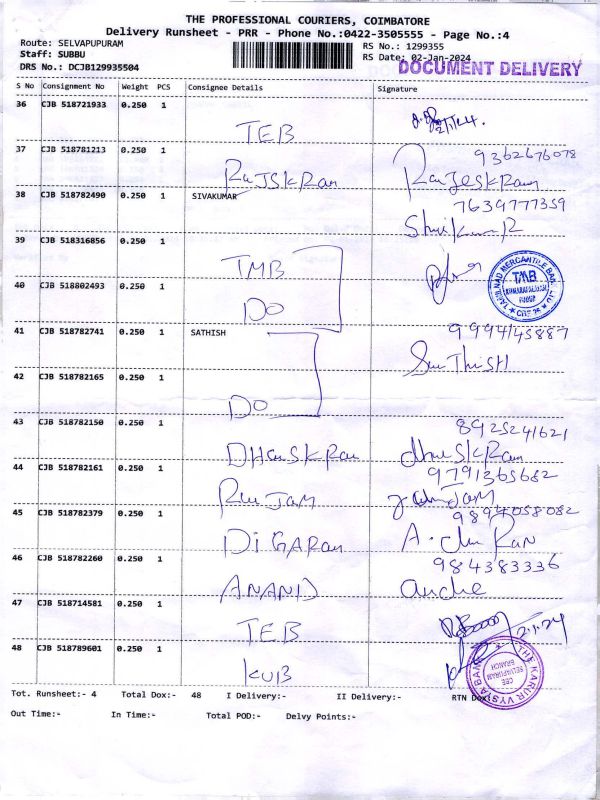 THE PROFESSIONAL COURIERS, COIMBATORE
Delivery Runsheet - PRR - Phone No.:0422-3505555 - Page No.:4
Route: SELVAPUPURAM
RS No.: 1299355
Staff: SUBBU
RS Date: 02-Jan-2024
DRS No.: DCJB129935504
DOCUMENT DELIVERY
S No Consignment No Weight PCS Consignee Details Signature
36 CJB 518721933 0.250 1
TEB
37 CJB 518781213 0.250 1 9362676078
38 CJB 518782490 0.250 1 SIVAKUMAR 7639777359
39 CJB 518316856 0.250 1
TMB
40 CJB 518802493 0.250 1
DO
TAMIL NAD MERCANTILE BANK LTD
TMB
CBE
41 CJB 518782741 0.250 1 SATHISH 9994145887
SaThisH
42 CJB 518782165 0.250 1
DO
43 CJB 518782150 0.250 1 8925241621
44 CJB 518782161 0.250 1 9791365682
45 CJB 518782379 0.250 1 9894058082
46 CJB 518782260 0.250 1 984383336
ANAND
47 CJB 518714581 0.250 1
TEB 2.1.24
48 CJB 518789601 0.250 1
KVB
THE KARUR VYSYA BANK
SELVAPURAM
BRANCH
CBE
Tot. Runsheet:- 4 Total Dox:- 48 I Delivery:- II Delivery:- RTN Dox:
Out Time:- In Time:- Total POD:- Delvy Points:-